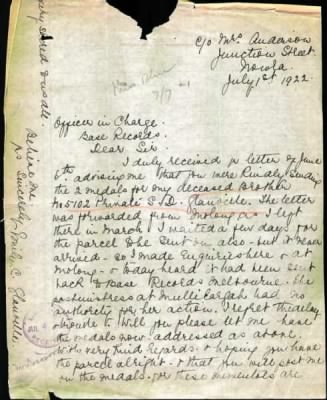 c/o Mrs Anderson
Junction Street
Nowra
July 1st 1922.
7/7
Officer in Charge.
Base Records.
Dear Sir.
I duly received yr letter of June
6th advising me that you were kindly sending
the 2 medals for my deceased Brother
No 5102 Private S. D. Glanville. The letter
was forwarded from Molong as I left
there in March. I waited a few days for
the parcel to be sent on also - but it never
arrived - so I made enquiries here & at
Molong - & today heard it had been sent
back to Base Records Melbourne. The
postmistress at had no
authority for her action. I regret the delay
& trouble to will you please let me have
the medals now addressed as above.
With very kind regards & hoping you have
the parcel alright - & that you will post me
on the medals. for these mementoes are
very sacred to us all.
Believe me
yrs Sincerely Glanville.